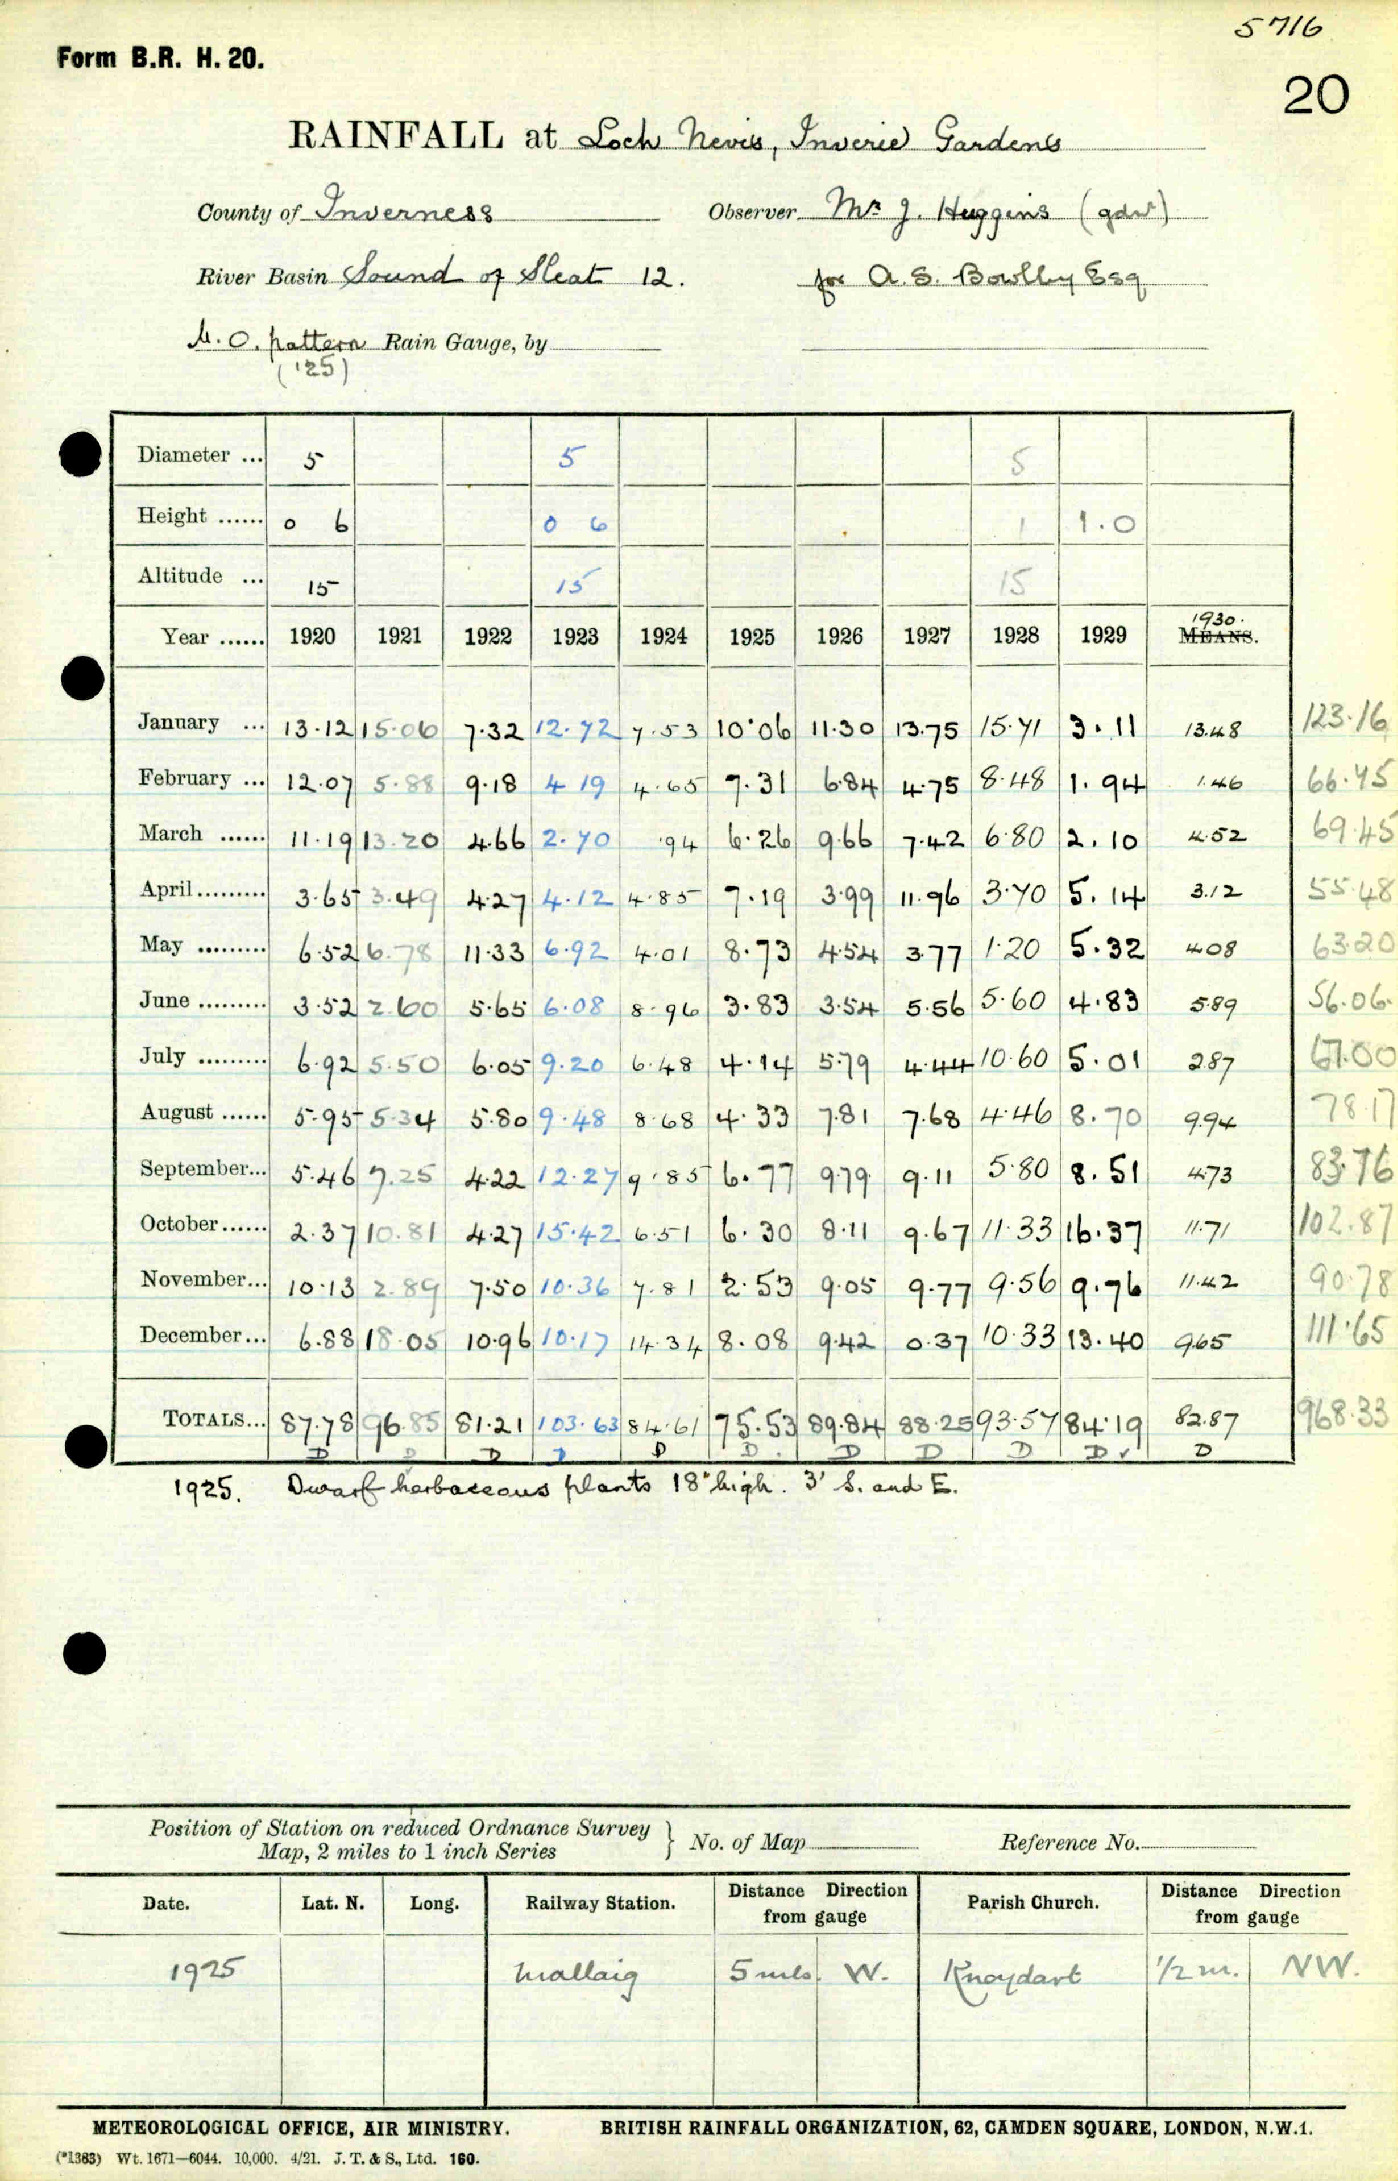 5716
Form B.R. H. 20.
20
RAINFALL at Loch Nevis, Inverie Gardens
County of Inverness Observer Mr J. Huggins (gdnr)
River Basin Sound of Sleat 12. for A. S. Bowlby Esq
M.O. pattern Rain Gauge, by
('25)
Diameter ... 5 5 5
Height ...... 0 6 0 6 1 1.0
Altitude ... 15 15 15
1930.
Year ...... 1920 1921 1922 1923 1924 1925 1926 1927 1928 1929 MEANS.
January ... 13.12 15.06 7.32 12.72 7.53 10.06 11.30 13.75 15.71 3.11 13.48 123.16
February ... 12.07 5.88 9.18 4 19 4.65 7.31 6.84 4.75 8.48 1.94 1.46 66.75
March ...... 11.19 13.20 4.66 2.70 .94 6.26 9.66 7.42 6.80 2.10 4.52 69.45
April ......... 3.65 3.49 4.27 4.12 4.85 7.19 3.99 11.96 3.70 5.14 3.12 55.48
May ......... 6.52 6.78 11.33 6.92 4.01 8.73 4.54 3.77 1.20 5.32 4.08 63.20
June ......... 3.52 2.60 5.65 6.08 8.96 3.83 3.54 5.56 5.60 4.83 5.89 56.06
July ......... 6.92 5.50 6.05 9.20 6.48 4.14 5.79 4.44 10.60 5.01 2.87 67.00
August ...... 5.95 5.34 5.80 9.48 8.68 4.33 7.81 7.68 4.46 8.70 9.94 78.17
September... 5.46 7.25 4.22 12.27 9.85 6.77 9.79 9.11 5.80 8.51 4.73 83.76
October...... 2.37 10.81 4.27 15.42 6.51 6.30 8.11 9.67 11.33 16.37 11.71 102.87
November... 10.13 2.89 7.50 10.36 7.81 2.53 9.05 9.77 9.56 9.76 11.42 90.78
December... 6.88 18.05 10.96 10.17 14.34 8.08 9.42 0.37 10.33 13.40 9.65 111.65
TOTALS... 87.78 96.85 81.21 103.63 84.61 75.53 89.84 88.25 93.57 84.19 82.87 968.33
D D D D D D D D D D ✓ D
1925. Dwarf herbaceous plants 18" high. 3' S. and E.
Position of Station on reduced Ordnance Survey
Map, 2 miles to 1 inch Series } No. of Map Reference No.
Date. Lat. N. Long. Railway Station. Distance Direction from gauge Parish Church. Distance Direction from gauge
1925 Mallaig 5 mls. W. Knoydart 1/2 m. NW.
METEOROLOGICAL OFFICE, AIR MINISTRY. BRITISH RAINFALL ORGANIZATION, 62, CAMDEN SQUARE, LONDON, N.W.1.
(*1383) Wt. 1671—6044. 10,000. 4/21. J. T. & S., Ltd. 160.